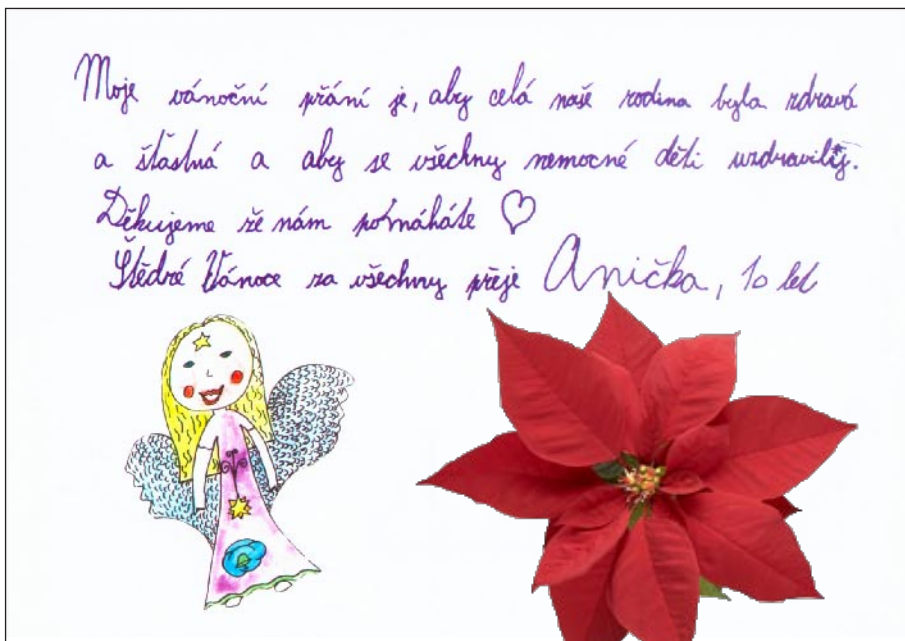 Moje vánoční přání je, aby celá naše rodina byla zdravá
a šťastná a aby se všechny nemocné děti uzdravily.
Děkujeme že nám pomáháte ♡
Štědré Vánoce za všechny přeje Anička, 10 let